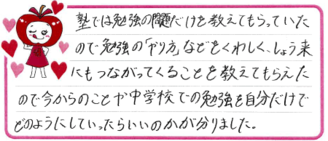 塾では勉強の問題だけを教えてもらっていた
ので勉強の「やり方」などをくわしく、しょう来
にもつながってくることを教えてもらえた
ので今からのことや中学校での勉強を自分だけで
どのようにしていったらいいのかが分りました。